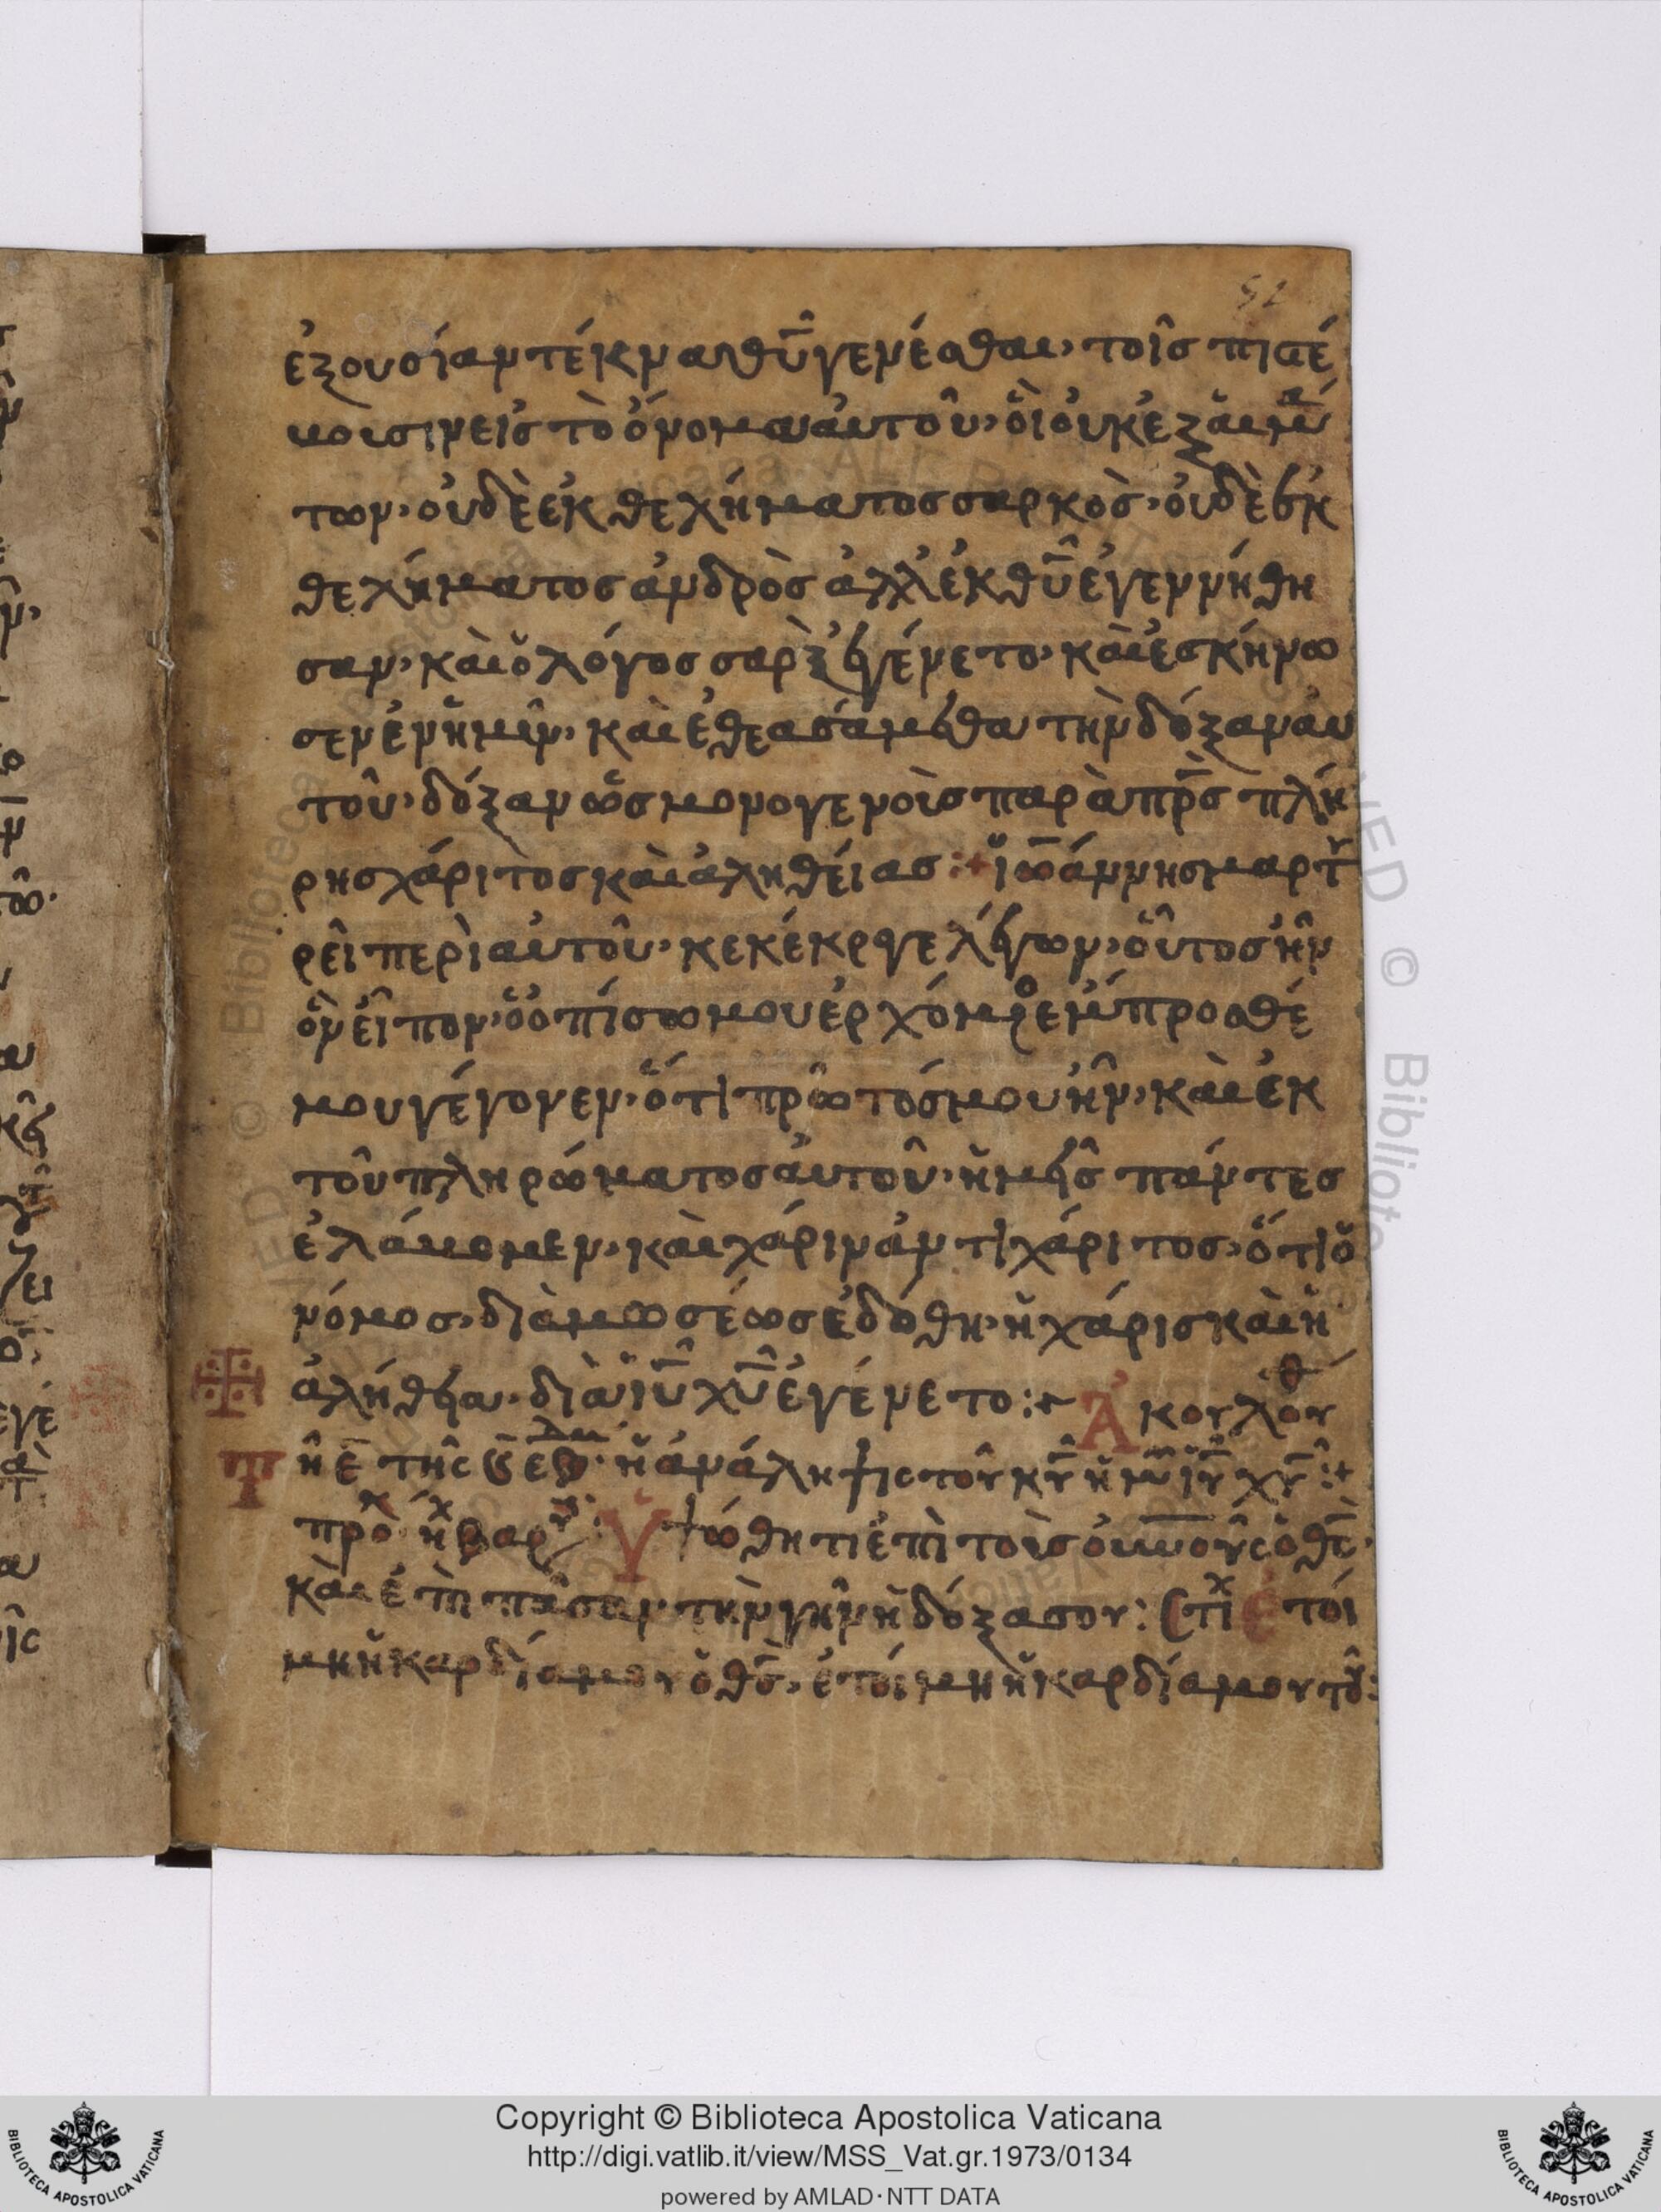 52
ἐξουσίαν τέκνα θῡ γενέσθαι· τοῖς πιστέ
υουσιν εἰς τὸ ὄνομα αὐτοῦ· ὃι οὐκ ἐξ αἱμά
των· οὐδὲ ἐκ θελήματος σαρκὸς· οὐδὲ ἐκ
θελήματος ἀνδρὸς ἀλλ' ἐκ θῡ ἐγεννήθη
σαν· καὶ ὁ λόγος σὰρξ ἐγένετο· καὶ ἐσκήνω
σεν ἐν ἡμῖν· καὶ ἐθεασάμεθα τὴν δόξαν αὐ
τοῦ· δόξαν ὡς μονογενοὺς παρὰ πρ̅ς πλή
ρης χάριτος καὶ ἀληθείας :+ ἰωάννης μαρτυ
ρεῖ περὶ αὐτοῦ· κὲ κέκραγε λέγων· οὗτος ἦν
ὃν εἶπον· ὁ ὀπίσω μου ἐρχόμενος ἔμπροσθέ
μου γέγονεν· ὅτι πρῶτός μου ἦν· καὶ ἐκ
τοῦ πληρώματος αὐτοῦ· ἡμεῖς πάντες
ἐλάβομεν· καὶ χάριν ἀντὶ χάριτος· ὅτι ὁ
νόμος· διὰ μωσέως ἐδόθη· ἡ χάρις καὶ ἡ
ἀλήθεια· διὰ ἰῡ χῡ ἐγένετο :+ Ἀκολου
Τῆ ε̅ τῆς ἑβδμ· ἡ ἀνάληψις τοῦ κῡ ἡμῶν ἰῡ χῡ :+
προκ ἠχ βαρ Ὑψώθητι ἐπὶ τοὺς οὐνοὺς ὁ θς·
καὶ ἐπὶ πᾶσαν τὴν γῆν ἡ δόξα σου : Στιχ Ἑτοί
μη ἡ καρδία μου ὁ θς· ἑτοίμη ἡ καρδία μου τοῦ:
Copyright © Biblioteca Apostolica Vaticana
http://digi.vatlib.it/view/MSS_Vat.gr.1973/0134
powered by AMLAD·NTT DATA
BIBLIOTECA APOSTOLICA VATICANA
BIBLIOTECA APOSTOLICA VATICANA